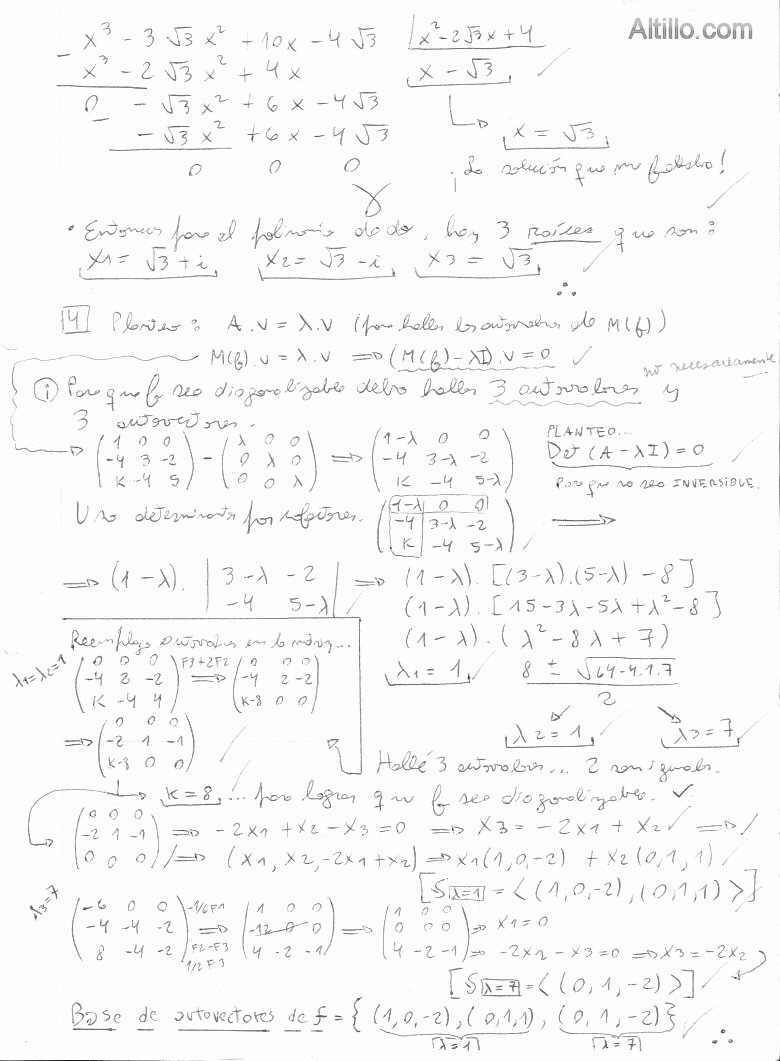 Altillo.com
x³ - 3√3 x² + 10x - 4√3 | x² - 2√3x + 4
- x³ - 2√3 x² + 4x
x - √3
0 - √3 x² + 6x - 4√3
- - √3 x² + 6x - 4√3
x = √3
0 0 0
¡La solución que me faltaba!
• Entonces para el polinomio dado, hay 3 raíces que son:
x1 = √3 + i x2 = √3 - i x3 = √3
∴
4 Planteo: A.v = λ.v (para hallar los autovalores de M(f))
M(f).v = λ.v ⟹ (M(f) - λI).v = 0
no necesariamente
i Para que f sea diagonalizable debo hallar 3 autovalores y
3 autovectores.
(1 0 0 / -4 3 -2 / K -4 5) - (λ 0 0 / 0 λ 0 / 0 0 λ) ⟹ (1-λ 0 0 / -4 3-λ -2 / K -4 5-λ)
PLANTEO...
Det (A - λI) = 0
Para que no sea INVERSIBLE.
Uso determinante por cofactores. (1-λ 0 0 / -4 3-λ -2 / K -4 5-λ) ⟹
⟹ (1-λ). |3-λ -2 / -4 5-λ| ⟹ (1-λ).[(3-λ).(5-λ) - 8]
(1-λ).[15 - 3λ - 5λ + λ² - 8]
(1-λ).(λ² - 8λ + 7)
λ1 = 1 8 ± √64-4.1.7
2
λ2 = 1 λ3 = 7
Hallé 3 autovalores... 2 son iguales.
Reemplazo autovalores en la matriz...
λ1=λ2=1 (0 0 0 / -4 2 -2 / K -4 4) F3+2F2 ⟹ (0 0 0 / -4 2 -2 / K-8 0 0)
⟹ (0 0 0 / -2 1 -1 / K-8 0 0)
K = 8, ... para lograr que f sea diagonalizable. ✓
(0 0 0 / -2 1 -1 / 0 0 0) ⟹ -2x1 + x2 - x3 = 0 ⟹ x3 = -2x1 + x2 ⟹
⟹ (x1, x2, -2x1+x2) ⟹ x1(1,0,-2) + x2(0,1,1)
[S λ=1 = <(1,0,-2),(0,1,1)>]
λ3=7 (-6 0 0 / -4 -4 -2 / 8 -4 -2) -1/6F1 ⟹ F2-F3 1/2F3 (1 0 0 / -12 0 0 / 4 -2 -1) ⟹ (1 0 0 / 0 0 0 / 4 -2 -1) ⟹ x1=0
⟹ -2x2 - x3 = 0 ⟹ x3 = -2x2
[S λ=7 = <(0,1,-2)>]
Base de autovectores de f = {(1,0,-2),(0,1,1),(0,1,-2)}
λ=1 λ=7
∴